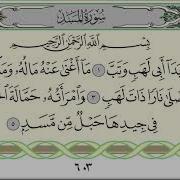 سُورَةُ المَسَدِ
بِسْمِ اللَّهِ الرَّحْمَٰنِ الرَّحِيمِ
يَدَآ أَبِى لَهَبٍ وَتَبَّ ١ مَآ أَغْنَىٰ عَنْهُ مَالُهُۥ وَمَ
صْلَىٰ نَارًا ذَاتَ لَهَبٍ ٣ وَٱمْرَأَتُهُۥ حَمَّالَةَ ٱلْ
فِى جِيدِهَا حَبْلٌ مِّن مَّسَدٍ ٥
٦٠٣